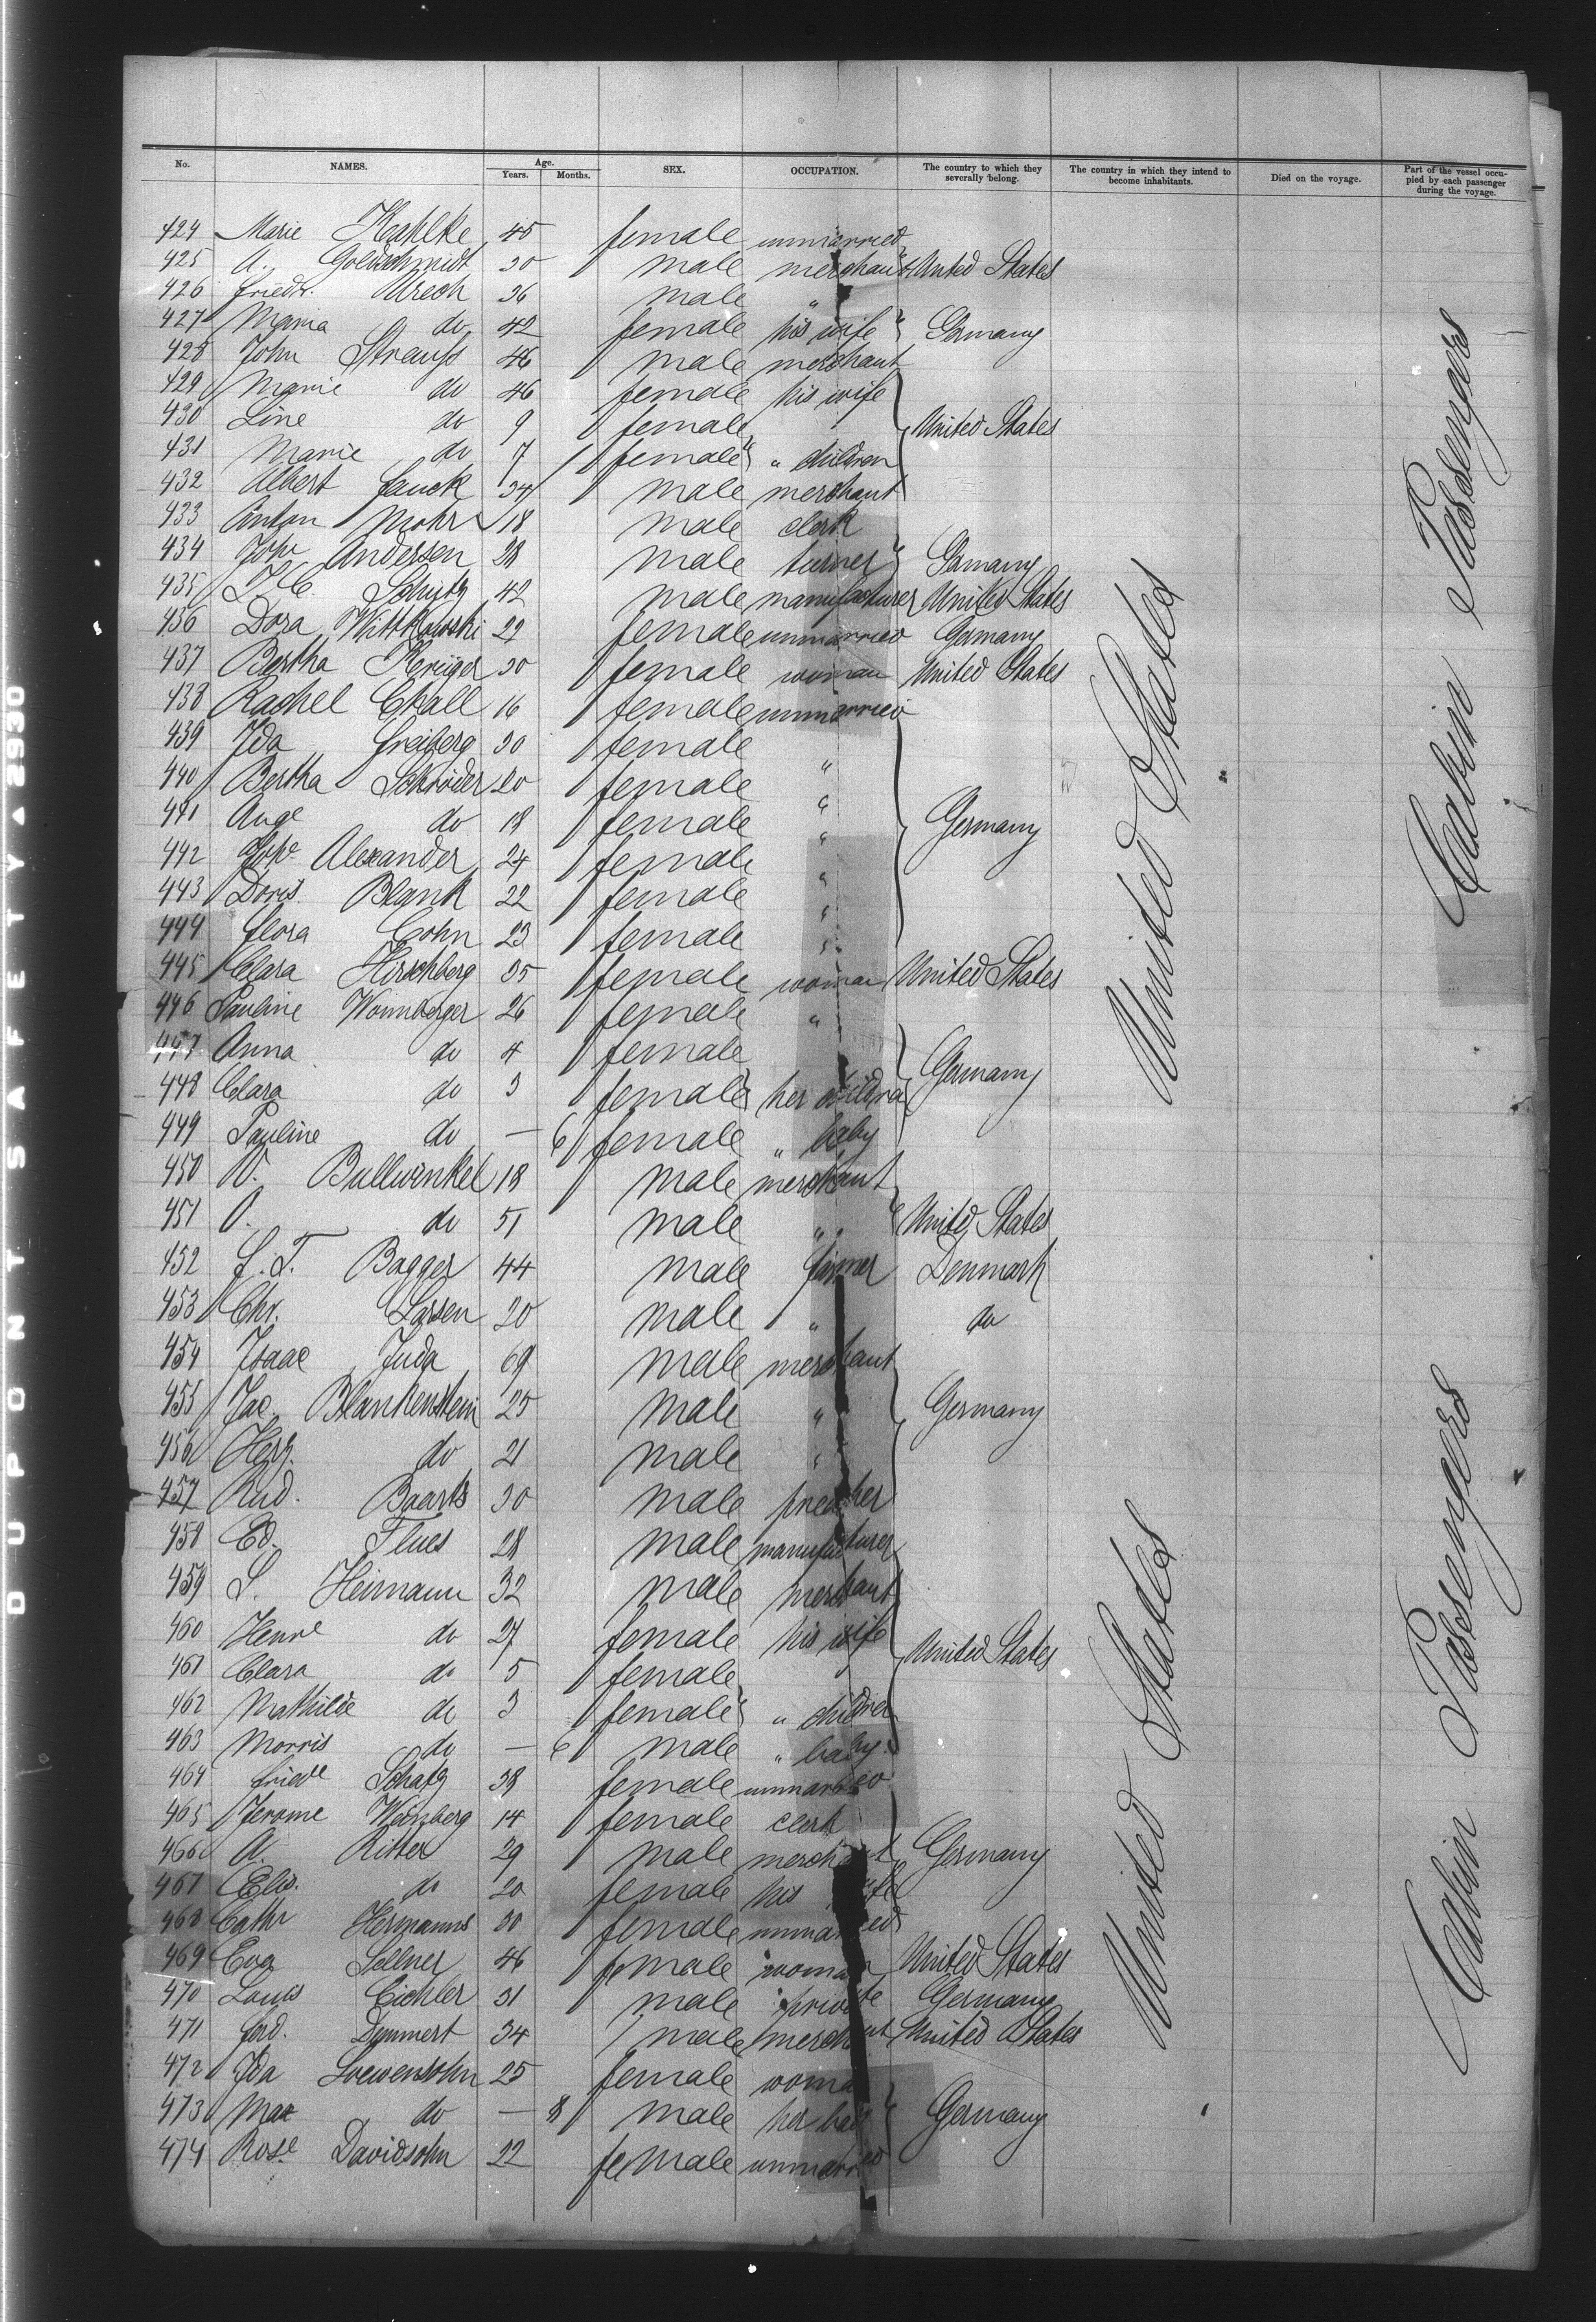 No. NAMES. Age. Years. Months. SEX. OCCUPATION. The country to which they severally belong. The country in which they intend to become inhabitants. Died on the voyage. Part of the vessel occupied by each passenger during the voyage.
424 Marie Kahlke 45 female unmarried
425 A. Goldschmidt 30 male merchant United States
426 Friedr. Urech 36 male "
427 Maria do 42 female his wife Germany
428 John Strauss 46 male merchant
429 Marie do 46 female his wife
430 Line do 9 female United States
431 Marie do 7 female " children
432 Albert Janck 34 male merchant
433 Anton Mohr 18 male clerk
434 Johs Andersen 28 male turner Germany
435 Schutz 42 male manufacturer United States
436 Dora Wittkowski 22 female unmarried Germany
437 Bertha Krüger 30 female woman United States
438 Rachel Chall 16 female unmarried
439 Ida Freiberg 30 female "
440 Bertha Schröder 20 female "
441 Auge do 18 female " Germany
442 Alexander 24 female "
443 Doris Blank 22 female "
444 Flora Cohn 23 female "
445 Clara Hirschberg 35 female woman United States
446 Pauline Wonnberger 26 female "
447 Anna do 4 female Germany
448 Clara do 3 female her children
449 Pauline do — 6 female " baby
450 W. Bullwinkel 18 male merchant
451 O. do 51 male " United States
452 F. T. Bagger 44 male farmer Denmark
453 Chr. Larsen 20 male " do
454 Isaac Juda 69 male merchant
455 Jac. Blankenstein 25 male " Germany
456 Herz. do 21 male "
457 Rud. Baarts 30 male preacher
458 Ed. Flues 28 male manufacturer
459 S. Heimann 32 male merchant
460 Henre do 27 female his wife United States
461 Clara do 5 female
462 Mathilde do 3 female " children
463 Morris do — 6 male " baby
464 Friede Schatz 38 female unmarried
465 Jerome Weinberg 14 female clerk
466 A. Ritter 29 male merchant Germany
467 Elis. do 20 female his wife
468 Cathr Hermanns 30 female unmarried
469 Eva Sellner 46 female woman United States
470 Louis Eichler 31 male private Germany
471 Ferd. Dymmert 34 male merchant United States
472 Ida Loewensohn 25 female woman
473 Max do — 8 male her baby Germany
474 Rose Davidsohn 22 female unmarried
United States
United States
Cabin Passengers
Cabin Passengers
DUPONT SAFETY 2930